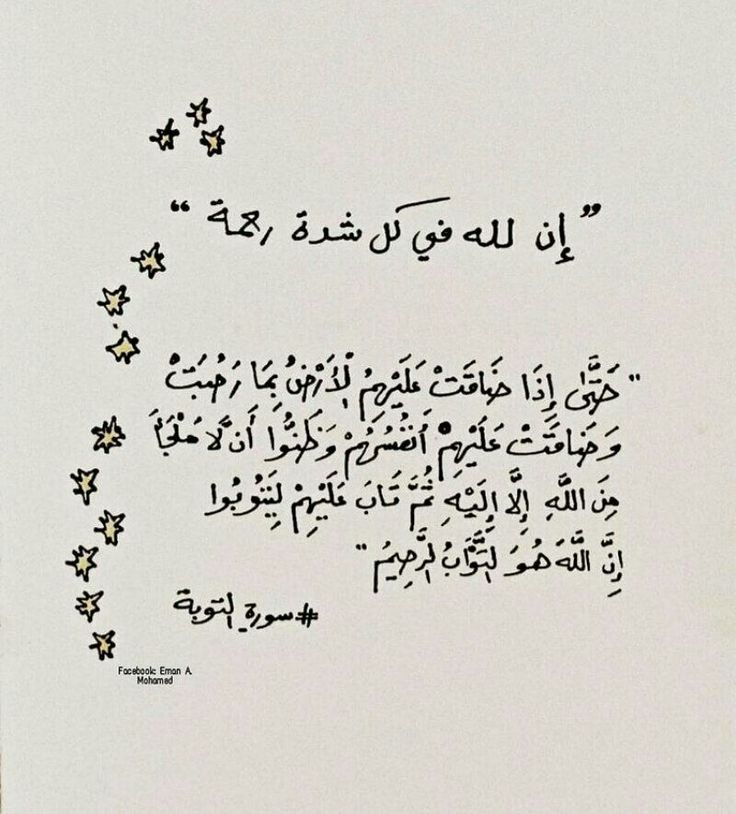 ” إن لله في كل شدة رحمة “
" حَتَّىٰ إِذَا ضَاقَتْ عَلَيْهِمُ الْأَرْضُ بِمَا رَحُبَتْ
وَضَاقَتْ عَلَيْهِمْ أَنفُسُهُمْ وَظَنُّوا أَن لَّا مَلْجَأَ
مِنَ اللَّهِ إِلَّا إِلَيْهِ ثُمَّ تَابَ عَلَيْهِمْ لِيَتُوبُوا
إِنَّ اللَّهَ هُوَ التَّوَّابُ الرَّحِيمُ "
#سورة التوبة
Facebook: Eman A.
Mohamed